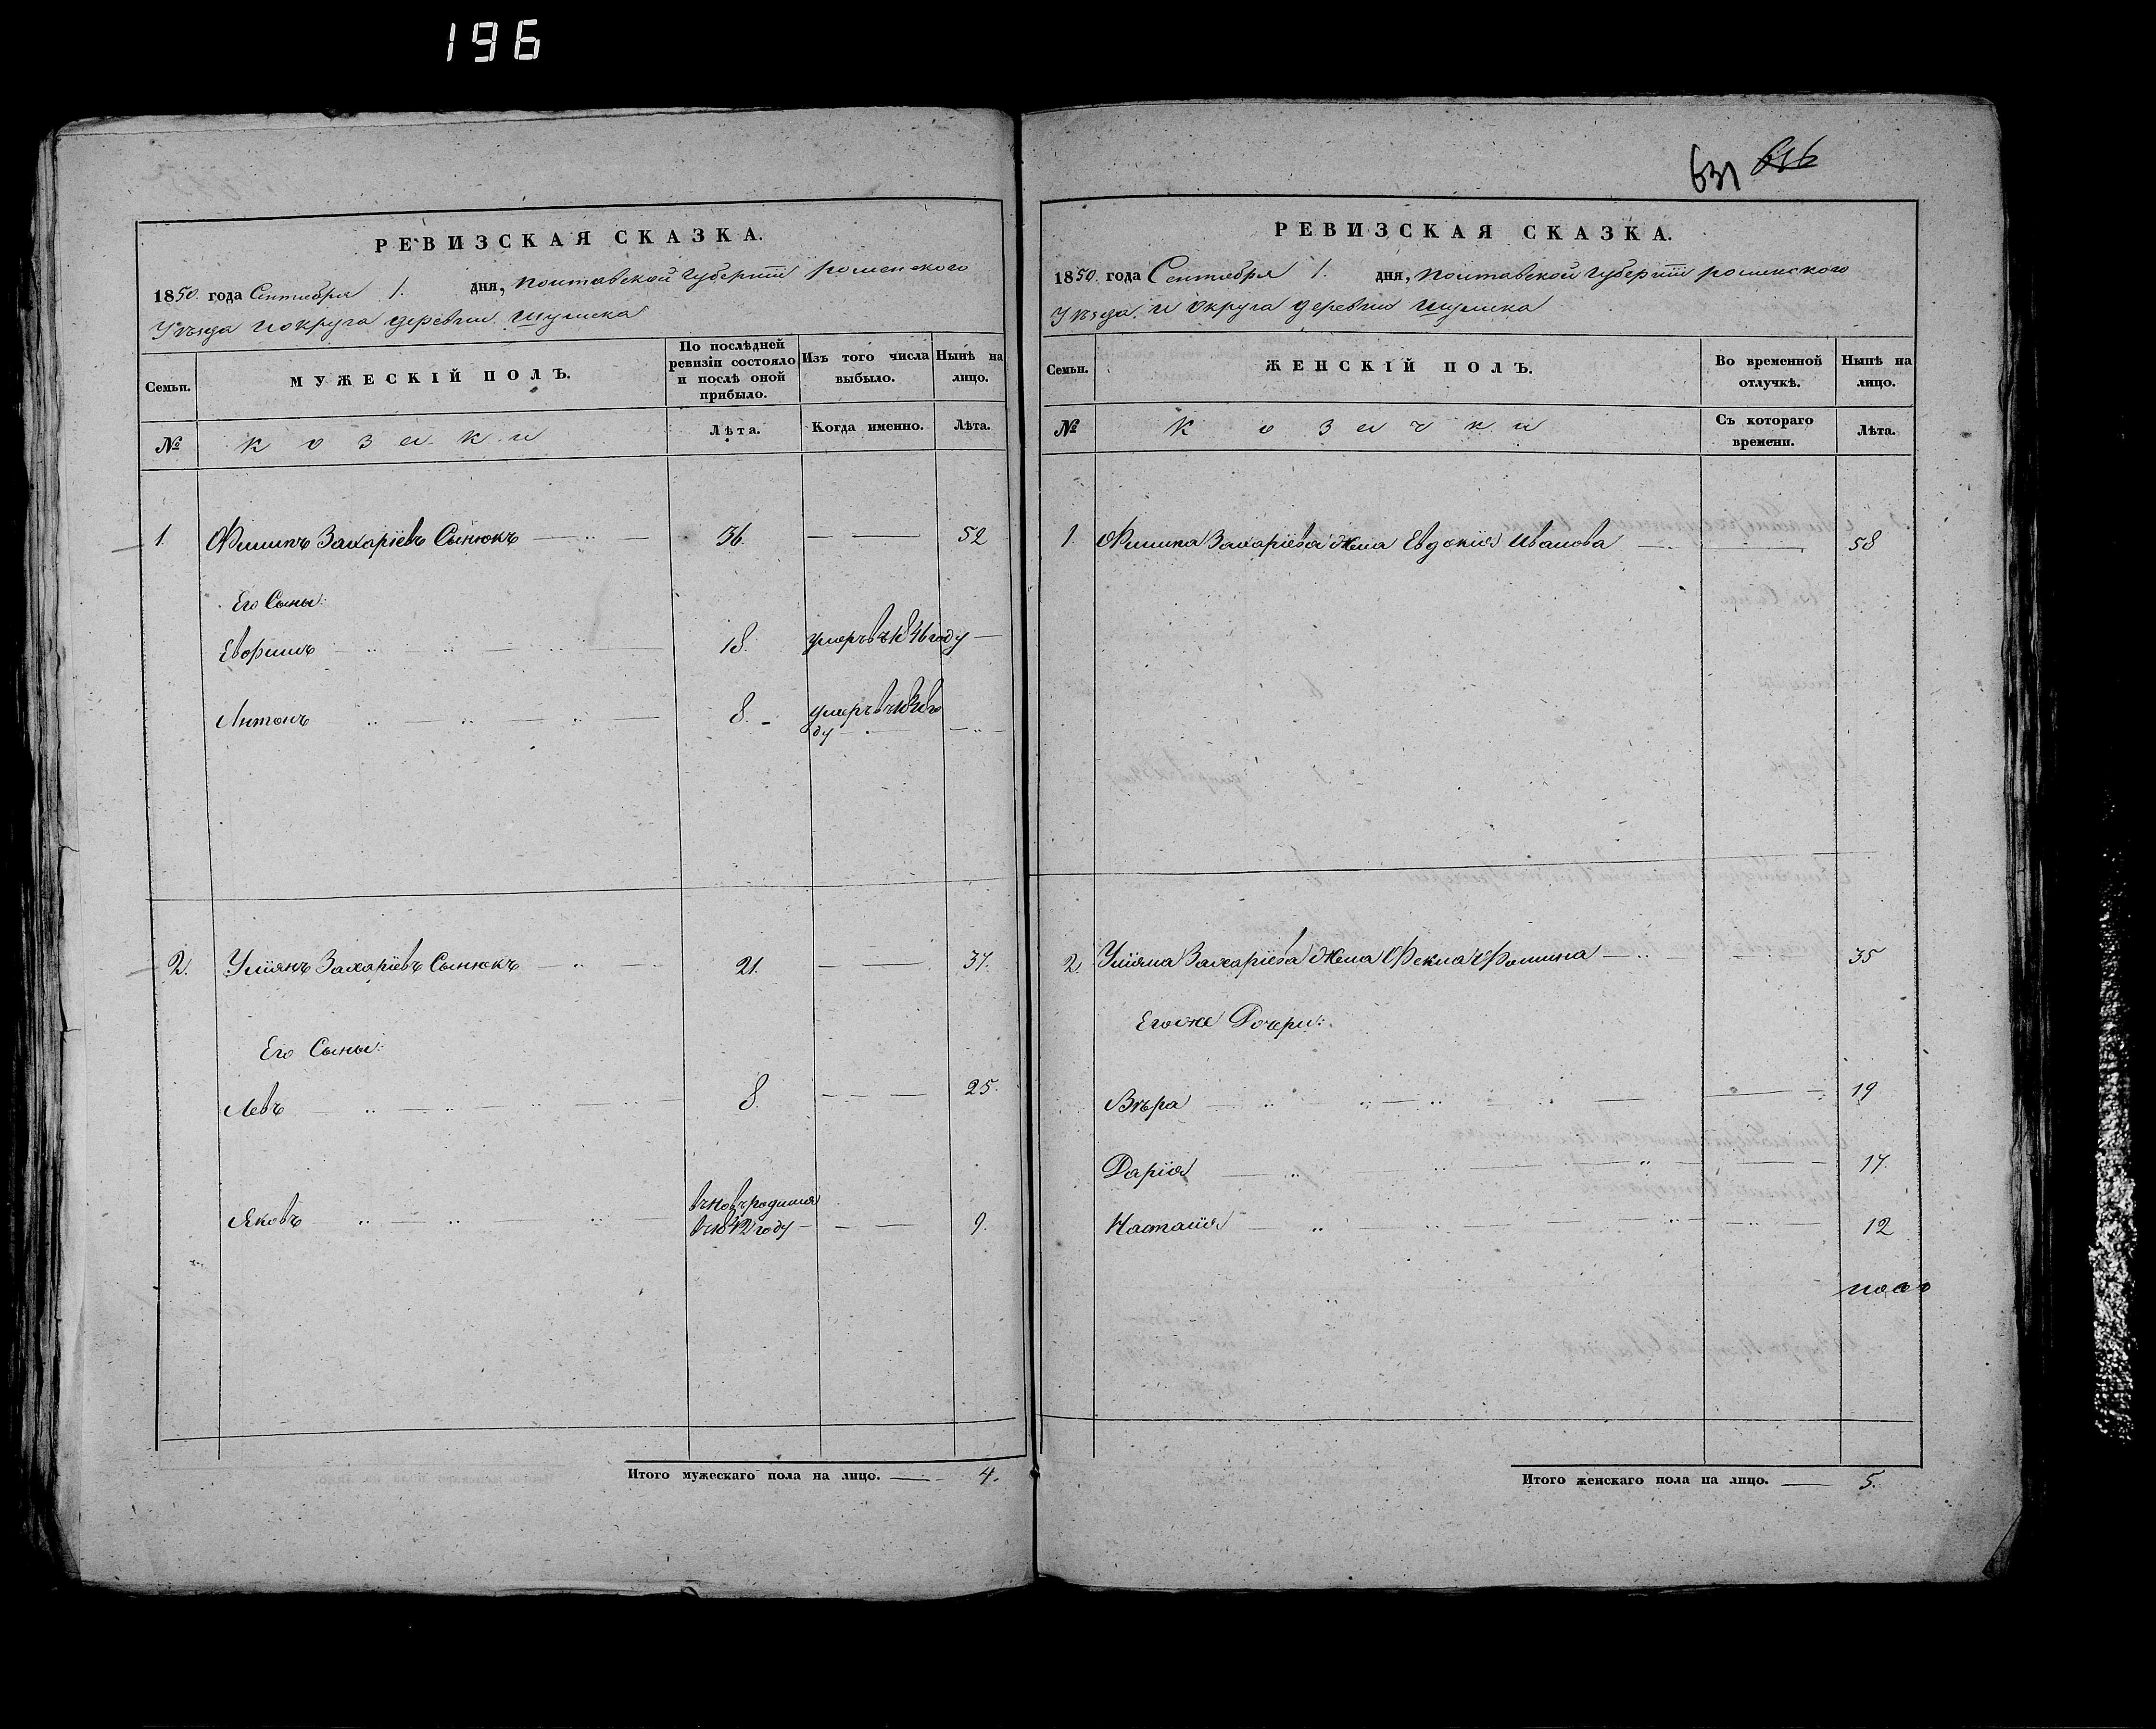 196
631 616
РЕВИЗСКАЯ СКАЗКА.
1850. года Сентября 1. дня, Полтавской Губерніи роменского
Уѣзда и округа деревни Шумска
Семьи.
МУЖЕСКІЙ ПОЛЪ.
По послѣдней ревизіи состояло и послѣ оной прибыло.
Изъ того числа выбыло.
Нынѣ на лицо.
№
козаки
Лѣта.
Когда именно.
Лѣта.
1. Филипъ Захаріевъ Сынюкъ 36. 52
Его Сыны:
18. умеръ въ 1846 году
Антонъ 8. умеръ въ го
ду
2. Уліянъ Захаріевъ Сынюкъ 21. 37.
Его Сыны:
Левъ 8. 25.
Яковъ вновъ родился
въ 1842 году 9.
Итого мужескаго пола на лицо. 4.
РЕВИЗСКАЯ СКАЗКА.
1850. года Сентября 1. дня, Полтавской Губерніи роменского
Уѣзда и округа деревни Шумска
Семьи.
ЖЕНСКІЙ ПОЛЪ.
Во временной отлучкѣ.
Нынѣ на лицо.
№
козачки
Съ котораго времени.
Лѣта.
1 Филипа Захаріева жена Евдокія Иванова 58
2 Уліяна Захаріева жена Фекла Фомина 35
Его же Дочери:
Вѣра 19
Дарія 17.
Настасія 12
Итого женскаго пола на лицо. 5.